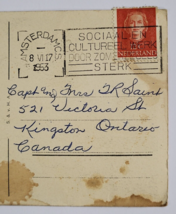 AMSTERDAM C.S.
8 VI 17
1953
SOCIAAL EN
CULTUREEL WERK
DOOR ZOMERZEGELS
STERK
NEDERLAND
Capt and Mrs T R Saint
521 Victoria St
Kingston Ontario
Canada